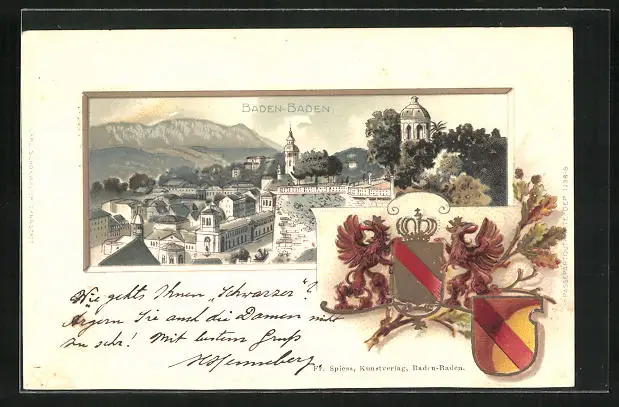 BADEN-BADEN
Wie gehts Ihnen „Schwarzer"?
Ärgern Sie auch die Damen nicht
zu sehr! Mit bestem Gruß
Henneberg
Fr. Spiess, Kunstverlag, Baden-Baden.